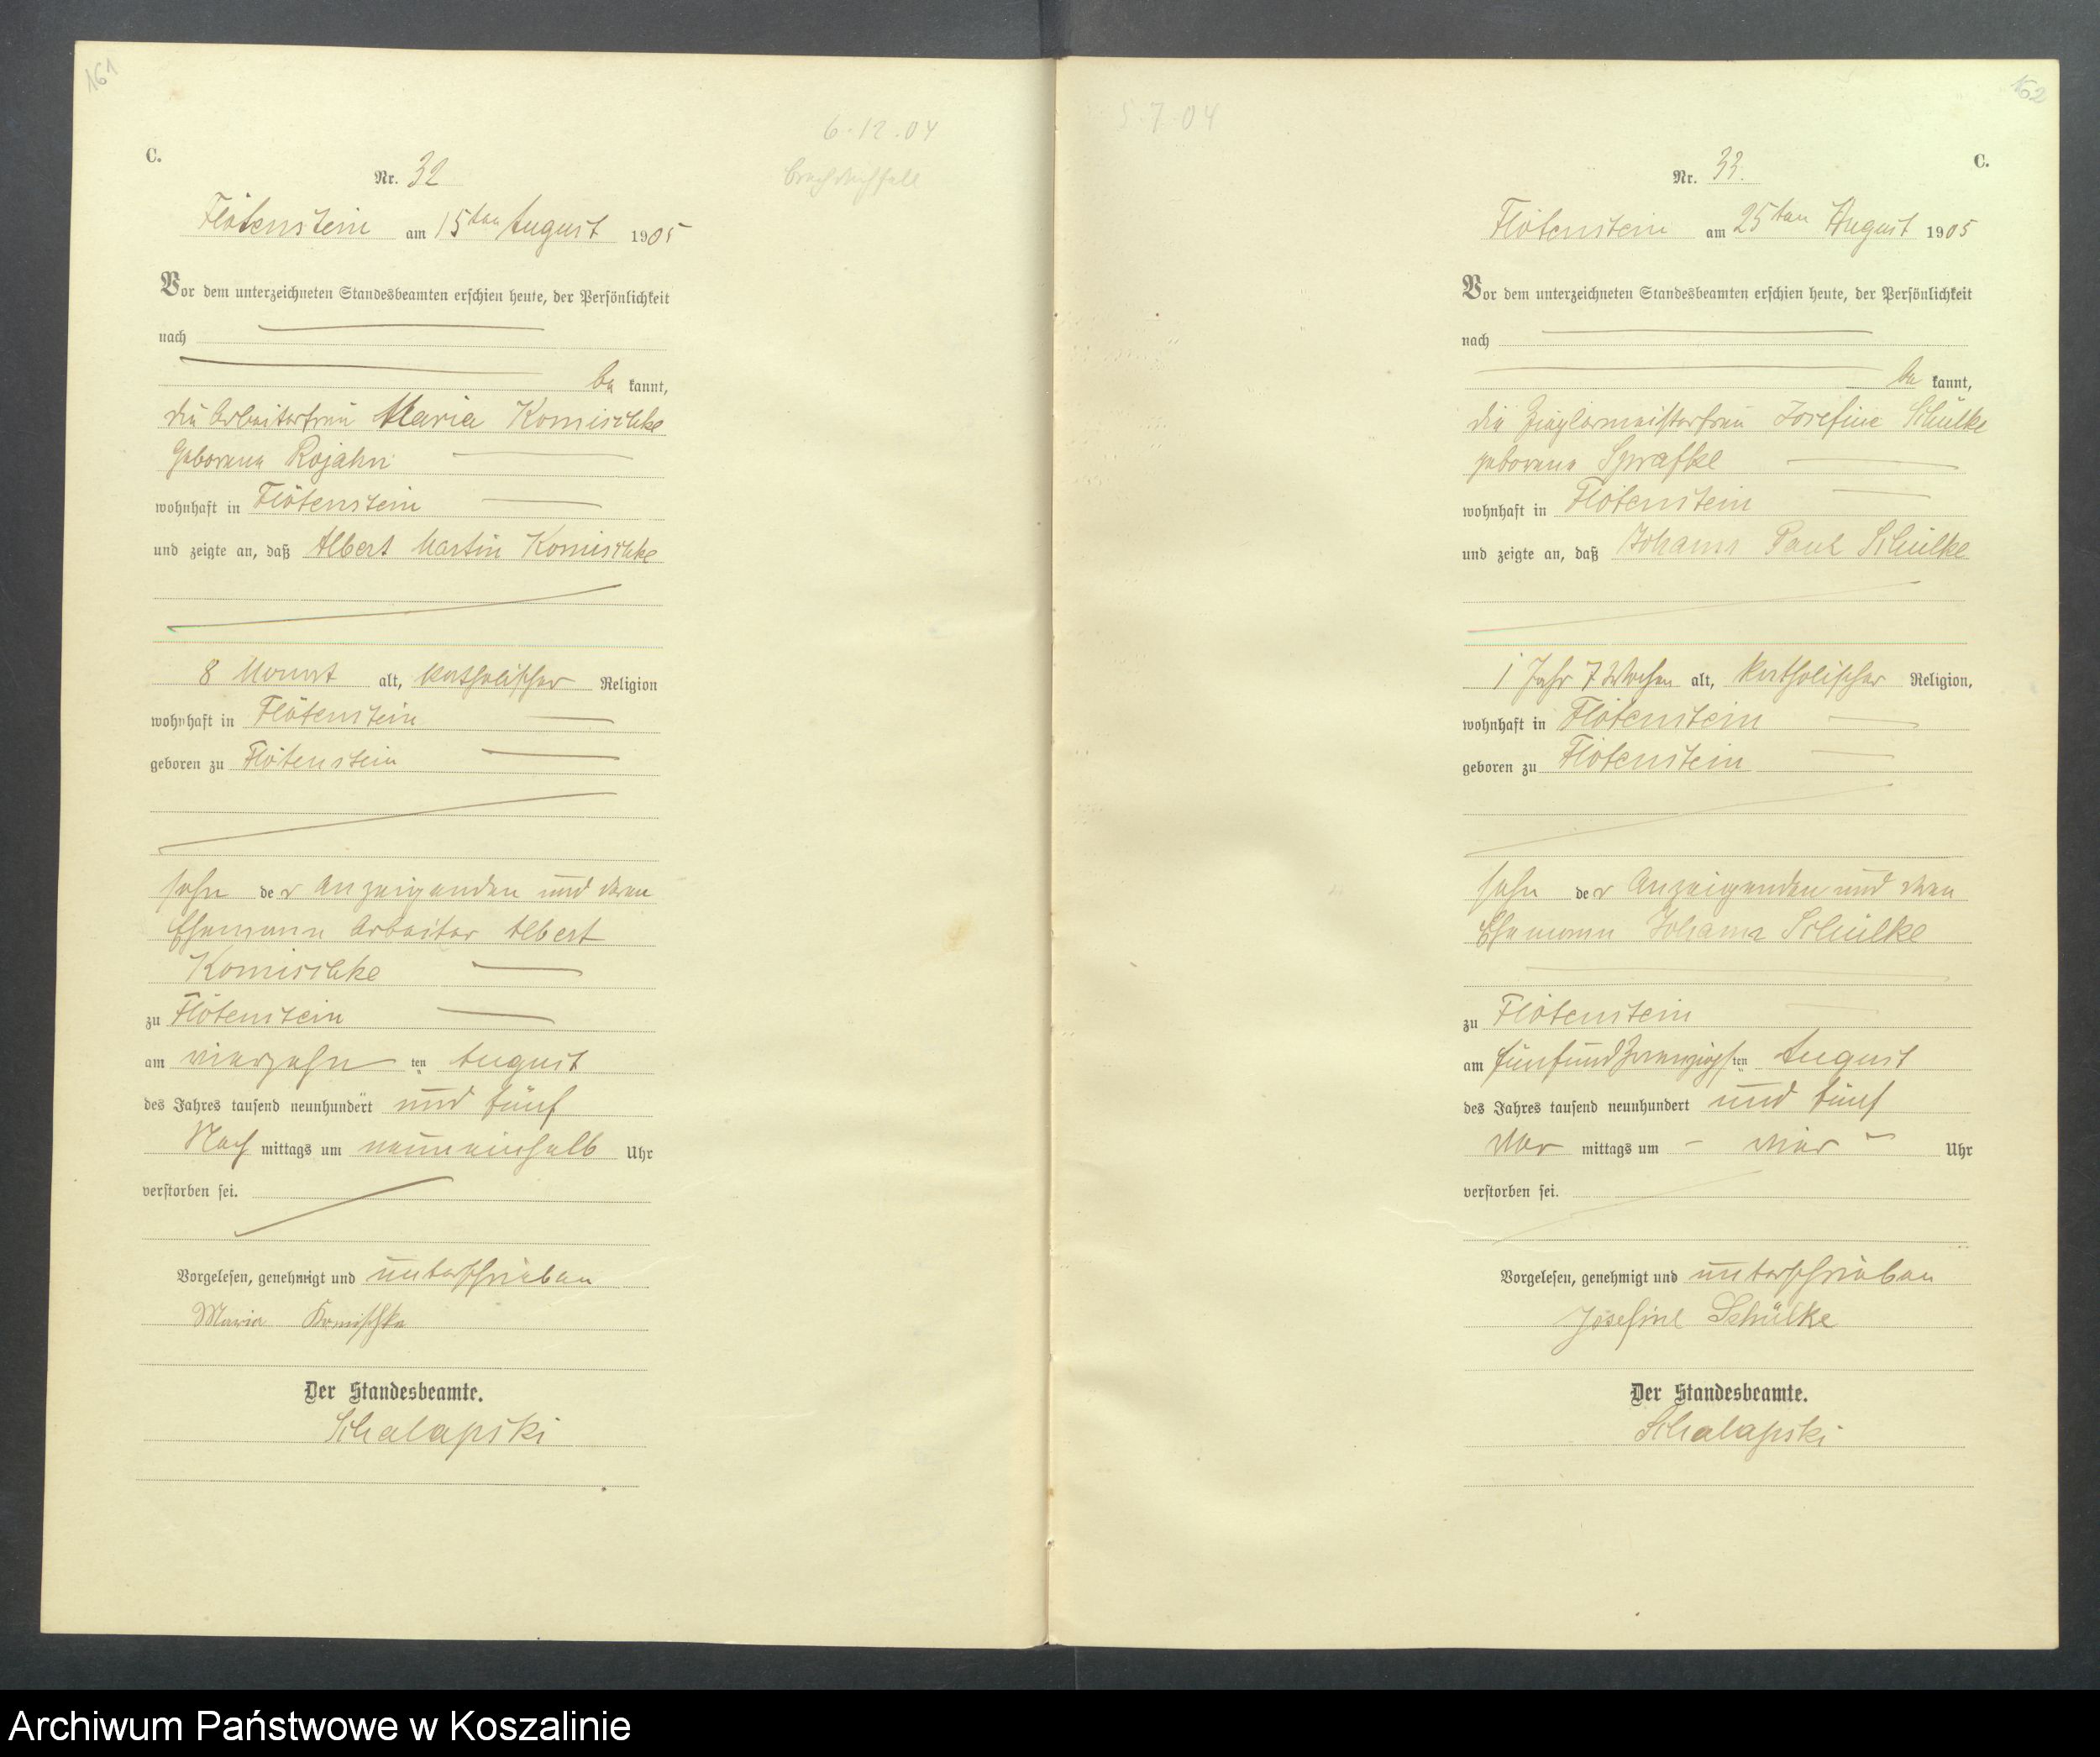 161
6.12.04
Brechdurchfall
C.
Nr. 32
Flötenstein am 15ten August 1905
Vor dem unterzeichneten Standesbeamten erschien heute, der Persönlichkeit
nach
be kannt,
die Arbeiterfrau Maria Komischke
geborene Rojahn
wohnhaft in Flötenstein
und zeigte an, daß Albert Martin Komischke
8 Monat alt, katholischer Religion
wohnhaft in Flötenstein
geboren zu Flötenstein
sohn de r Anzeigenden und deren
Ehemann Arbeiter Albert
Komischke
zu Flötenstein
am vierzehn ten August
des Jahres tausend neunhundert und fünf
Nach mittags um neuneinhalb Uhr
verstorben sei.
Vorgelesen, genehmigt und unterschrieben
Maria Komischke
Der Standesbeamte.
Schalapski
162
5.7.04
C.
Nr. 33.
Flötenstein am 25ten August 1905
Vor dem unterzeichneten Standesbeamten erschien heute, der Persönlichkeit
nach
be kannt,
die Zieglermeisterfrau Josefine Schülke
geborene Spraffke
wohnhaft in Flötenstein
und zeigte an, daß Johann Paul Schülke
1 Jahr 7 Wochen alt, katholischer Religion,
wohnhaft in Flötenstein
geboren zu Flötenstein
sohn de r Anzeigenden und deren
Ehemann Johann Schülke
zu Flötenstein
am fünfundzwanzigsten August
des Jahres tausend neunhundert und fünf
Vor mittags um - vier - Uhr
verstorben sei.
Vorgelesen, genehmigt und unterschrieben
Josefine Schülke
Der Standesbeamte.
Schalapski
Archiwum Państwowe w Koszalinie